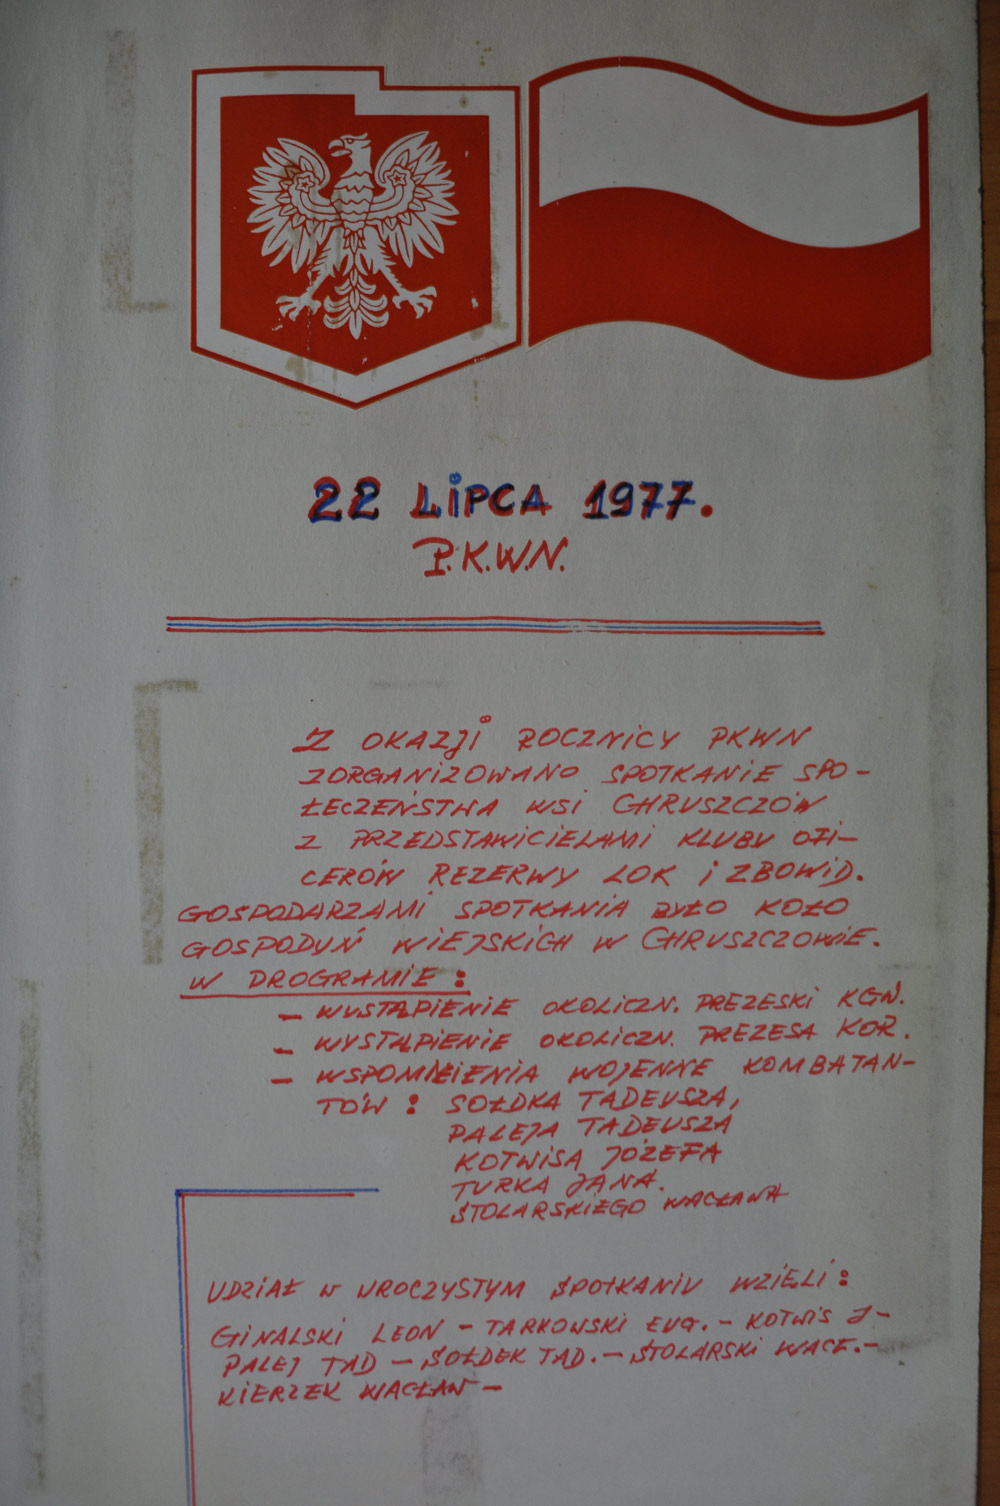 22 LIPCA 1977.
P.K.W.N.
Z OKAZJI ROCZNICY PKWN
ZORGANIZOWANO SPOTKANIE SPO-
ŁECZEŃSTWA WSI CHRUSZCZÓW
Z PRZEDSTAWICIELAMI KLUBU OFI-
CERÓW REZERWY LOK i ZBOWID.
GOSPODARZAMI SPOTKANIA BYŁO KOŁO
GOSPODYŃ WIEJSKICH W CHRUSZCZOWIE.
W PROGRAMIE:
- WYSTĄPIENIE OKOLICZN. PREZESKI KGW.
- WYSTĄPIENIE OKOLICZN. PREZESA KOR.
- WSPOMNIENIA WOJENNE KOMBATAN-
TÓW: SOŁDKA TADEUSZA,
PALEJA TADEUSZA
KOTWISA JÓZEFA
TURKA JANA.
STOLARSKIEGO WACŁAWA
UDZIAŁ W UROCZYSTYM SPOTKANIU WZIĘLI:
GINALSKI LEON - TARKOWSKI EUG. - KOTWIS J-
PALEJ TAD - SOŁDEK TAD. - STOLARSKI WACŁ. -
KIERZEK WACŁAW -